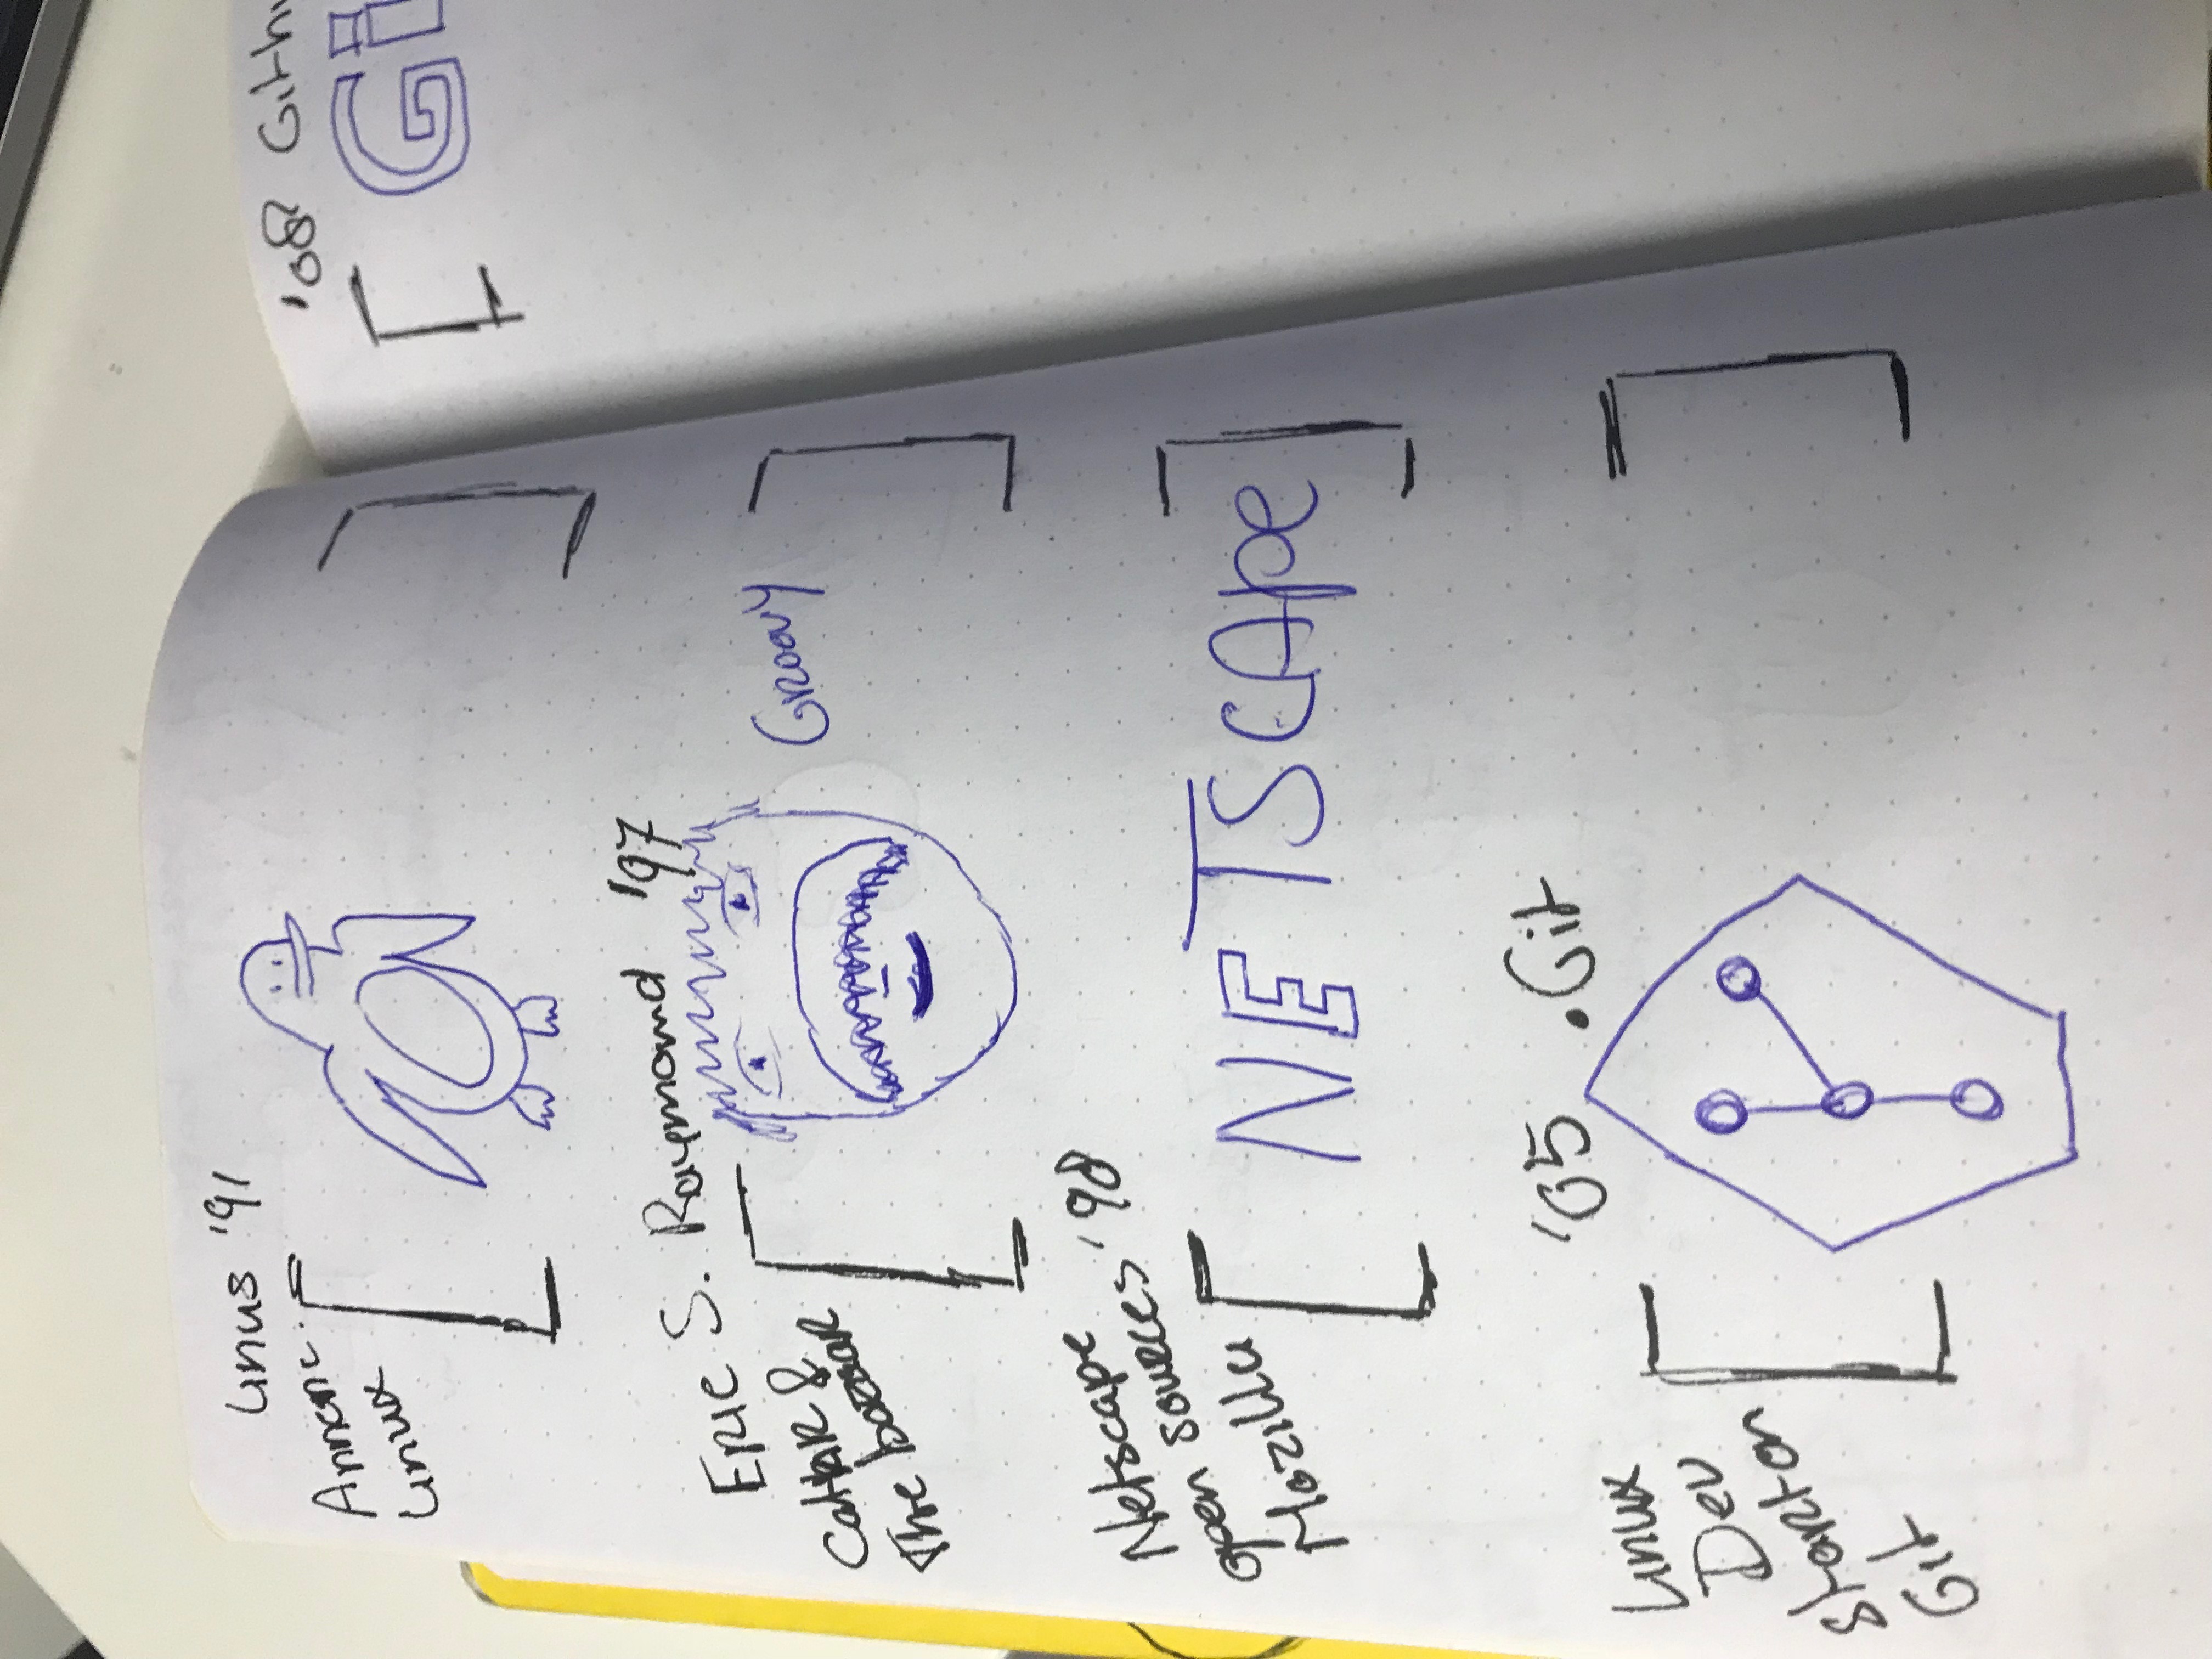 Linus '91
Annonc.
Linux
Eric S. Raymond '97
Groovy
The bazaar
Netscape
open sources '98
Mozilla
NETSCApe
'05 .Git
Linux
Dev
start on
Git
'08 Githu
Gi